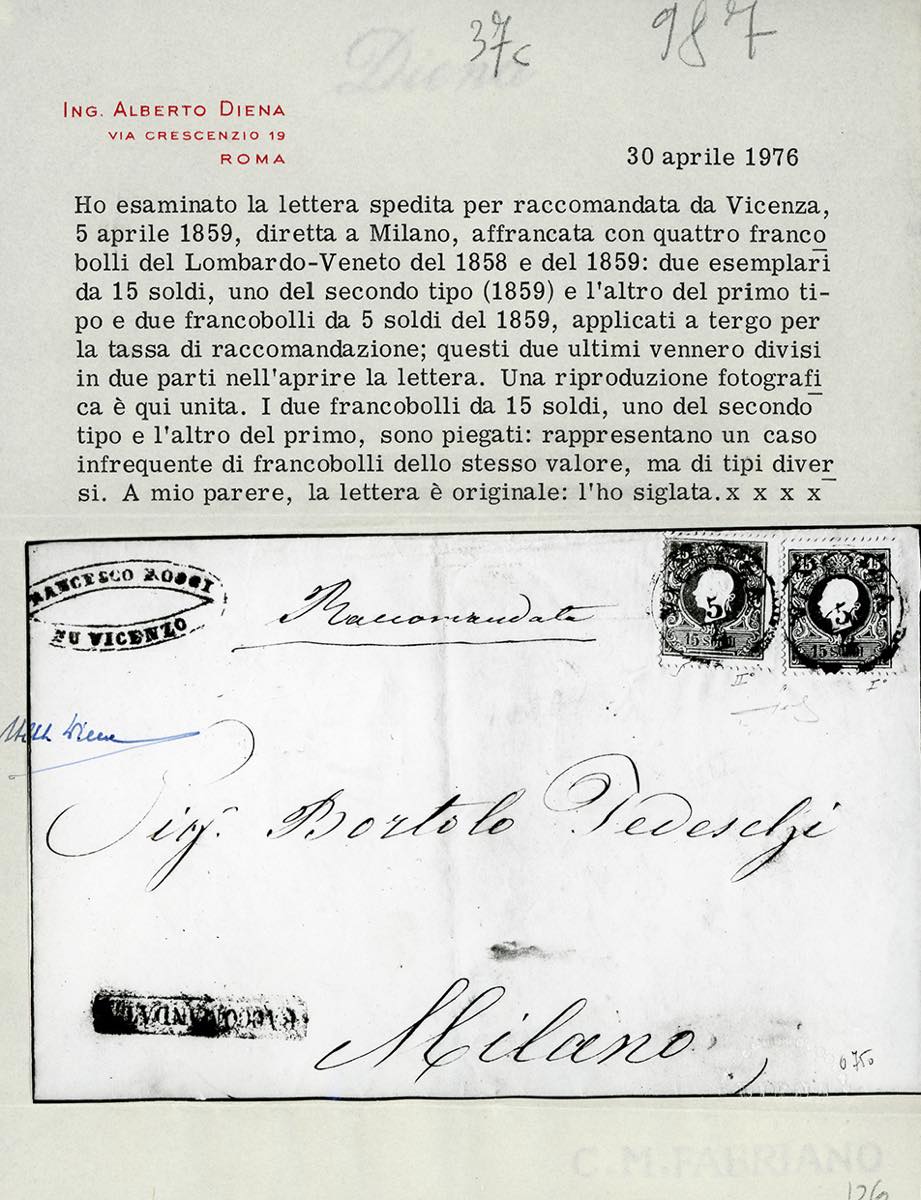 37c
987
Diena
ING. ALBERTO DIENA
VIA CRESCENZIO 19
ROMA
30 aprile 1976
Ho esaminato la lettera spedita per raccomandata da Vicenza,
5 aprile 1859, diretta a Milano, affrancata con quattro franco
bolli del Lombardo-Veneto del 1858 e del 1859: due esemplari
da 15 soldi, uno del secondo tipo (1859) e l'altro del primo ti-
po e due francobolli da 5 soldi del 1859, applicati a tergo per
la tassa di raccomandazione; questi due ultimi vennero divisi
in due parti nell'aprire la lettera. Una riproduzione fotografi
ca è qui unita. I due francobolli da 15 soldi, uno del secondo
tipo e l'altro del primo, sono piegati: rappresentano un caso
infrequente di francobolli dello stesso valore, ma di tipi diver
si. A mio parere, la lettera è originale: l'ho siglata. x x x x
RANCESCO ROSSI
FU VICENZO
Raccomandata
15 15
5
15 SOLDI
15 15
5
15 SOLDI
II°
I°
Sig.r Bortolo Tedeschi
RACCOMANDATA
Milano
C.M.FABRIANO